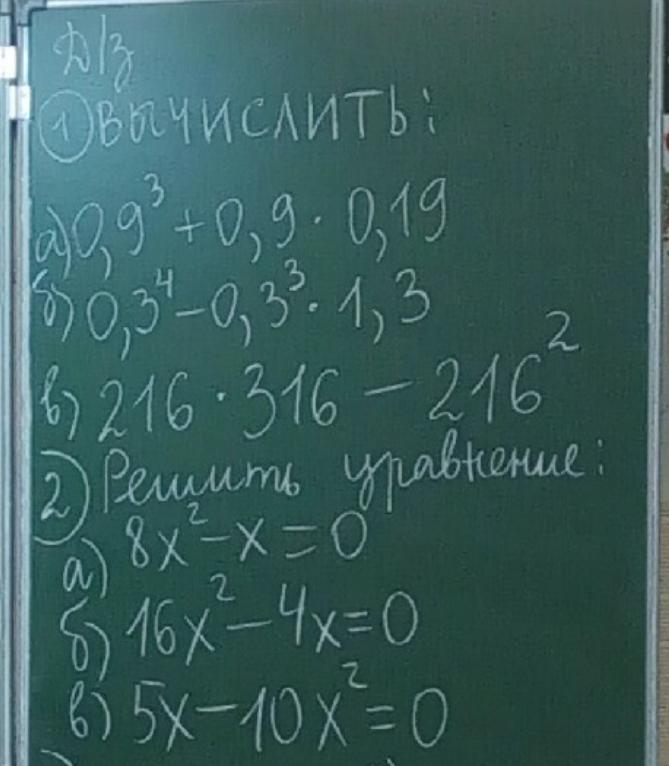 Д/з
① ВЫЧИСЛИТЬ:
а) 0,9³ + 0,9 · 0,19
б) 0,3⁴ - 0,3³ · 1,3
в) 216 · 316 - 216²
② Решить уравнение:
а) 8x² - x = 0
б) 16x² - 4x = 0
в) 5x - 10x² = 0